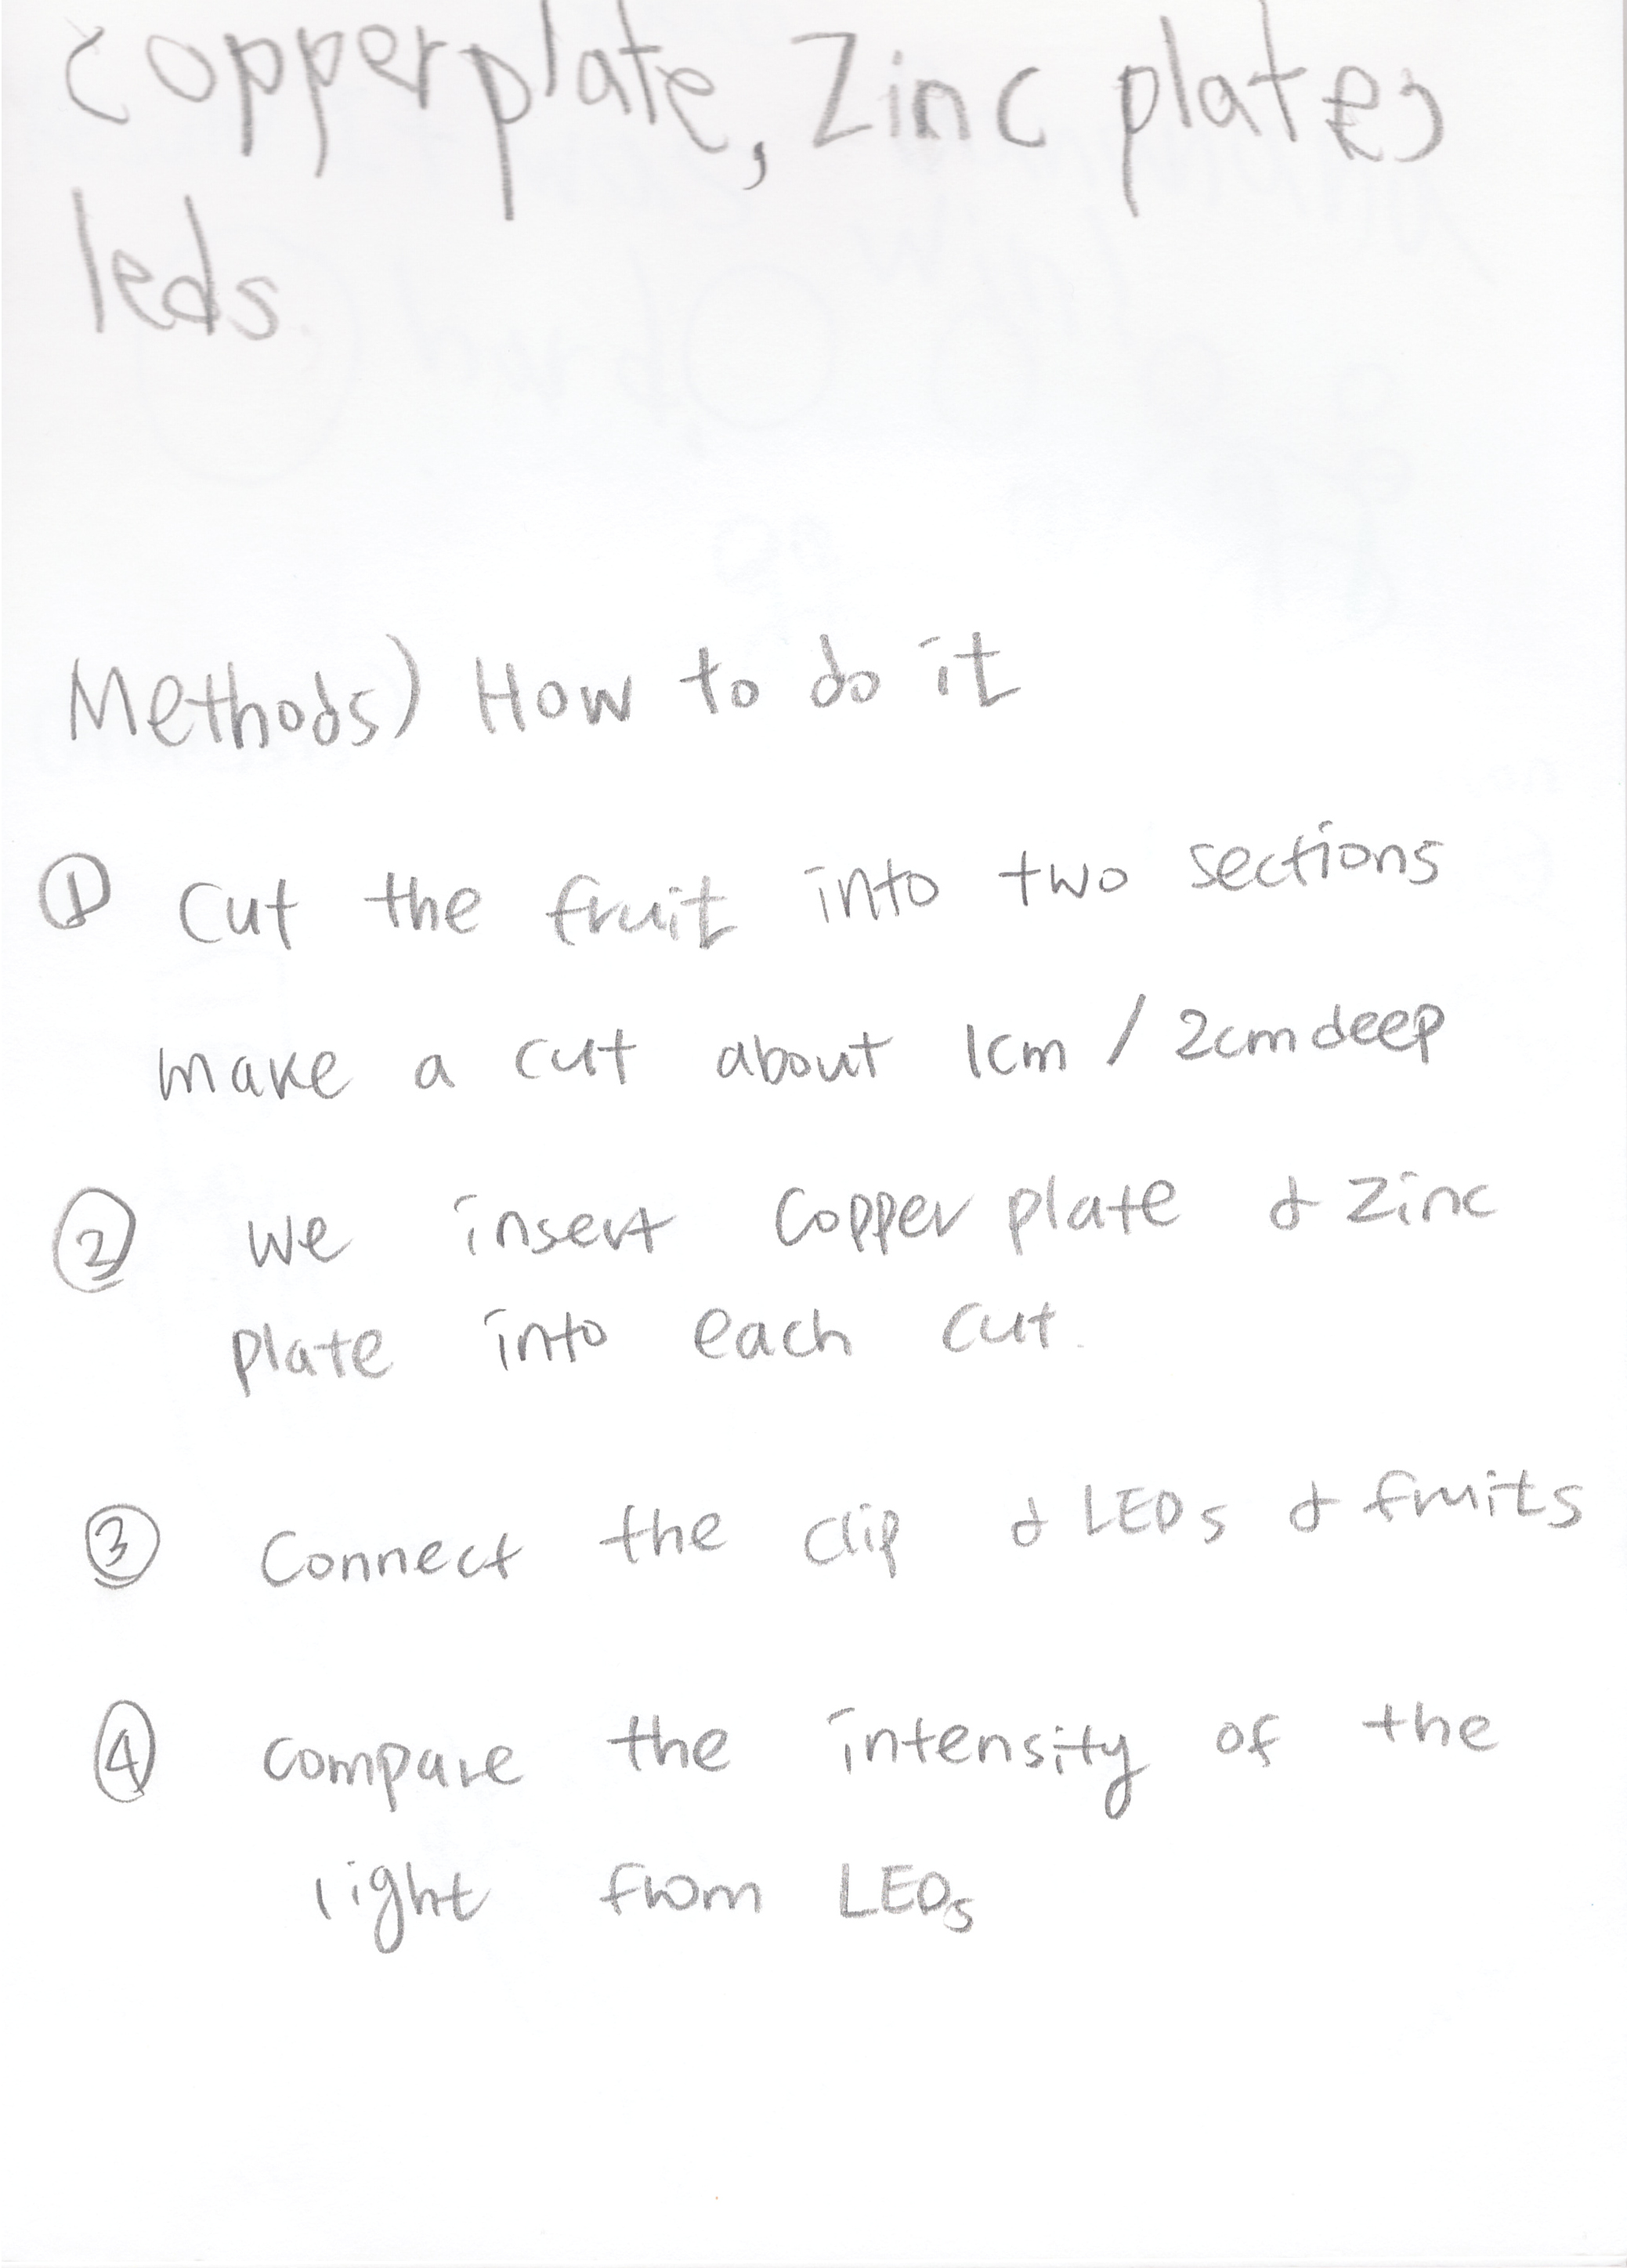 copperplate, Zinc plate,
leds
Methods) How to do it
① cut the fruit into two sections
make a cut about 1cm / 2cm deep
② we insert copper plate & zinc
plate into each cut.
③ connect the clip & LEDs & fruits
④ compare the intensity of the
light from LEDs